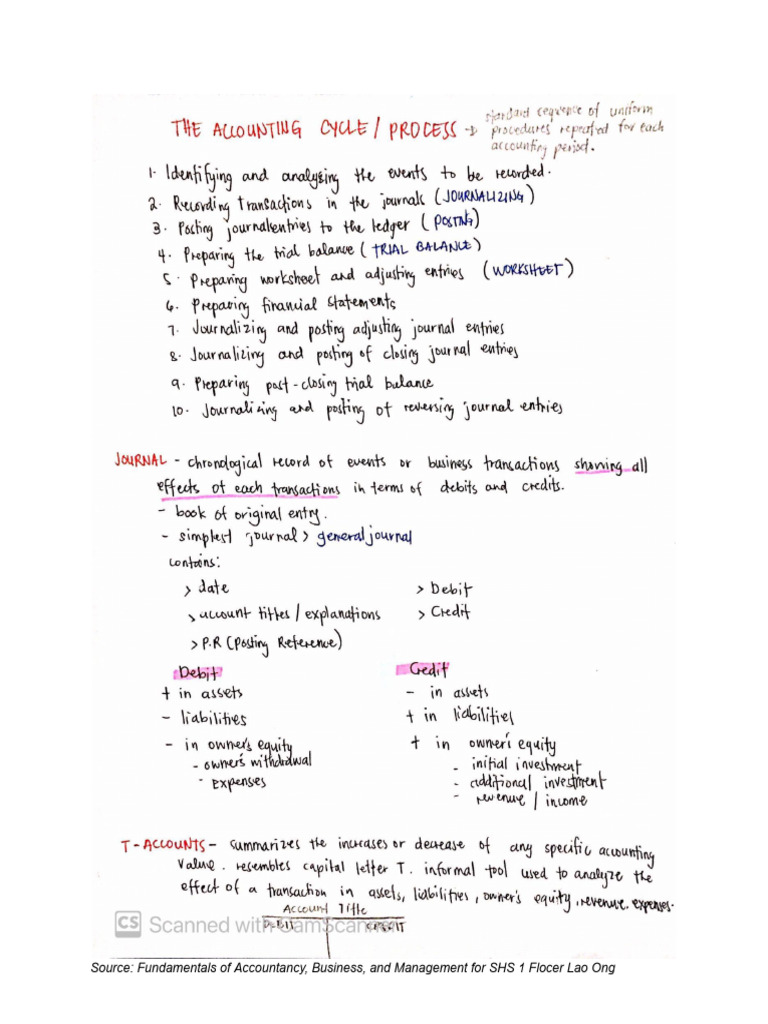 THE ACCOUNTING CYCLE / PROCESS → standard cequence of uniform
procedures repeated for each
accounting period.
1. Identifying and analyzing the events to be recorded.
2. Recording transactions in the journals (JOURNALIZING)
3. Posting journal entries to the ledger (POSTING)
4. Preparing the trial balance (TRIAL BALANCE)
5. Preparing worksheet and adjusting entries (WORKSHEET)
6. Preparing financial statements
7. Journalizing and posting adjusting journal entries
8. Journalizing and posting of closing journal entries
9. Preparing post-closing trial balance
10. Journalizing and posting of reversing journal entries
JOURNAL - chronological record of events or business transactions showing all
effects of each transactions in terms of debits and credits.
- book of original entry.
- simplest journal > general journal
contains:
> date > Debit
> account titles / explanations > Credit
> P.R (Posting Reference)
Debit Credit
+ in assets - in assets
- liabilities + in liabilities
- in owner's equity + in owner's equity
- owner's withdrawal - initial investment
- expenses - additional investment
- revenue / income
T-ACCOUNTS - summarizes the increases or decrease of any specific accounting
value. resembles capital letter T. informal tool used to analyze the
effect of a transaction in assets, liabilities, owner's equity, revenue. expenses.
Account Title
DEBIT CREDIT
CS Scanned with CamScanner
Source: Fundamentals of Accountancy, Business, and Management for SHS 1 Flocer Lao Ong